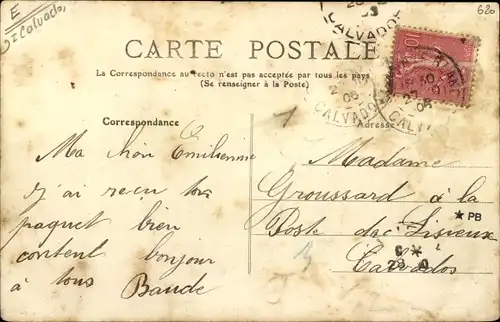 E
Calvados
620
CALVADOS
CARTE POSTALE
La Correspondance au recto n'est pas acceptée par tous les pays
(Se renseigner à la Poste)
10
CALVADOS
05
Correspondance
Adresse
Ma bien Emilienne
j'ai reçu ton
paquet bien
content bonjour
à tous Baude
1
Madame
Groussard à la
Poste de Lisieux
Calvados
★PB